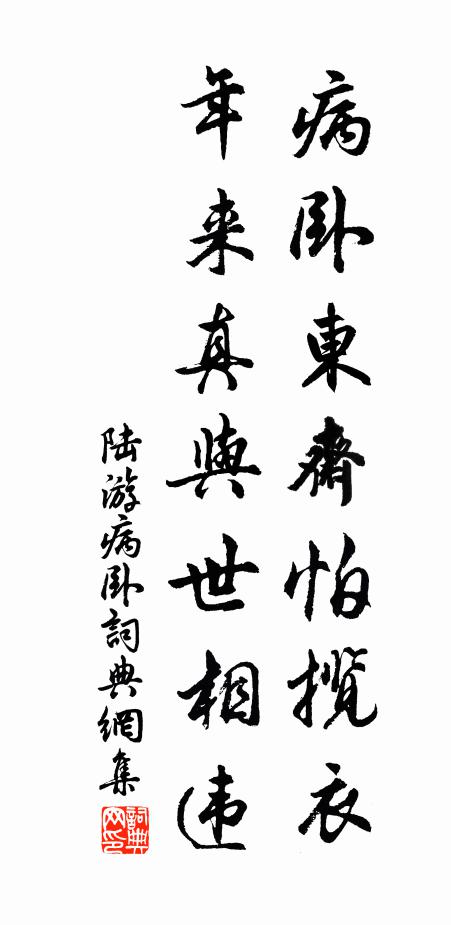 病卧東齋怕攬衣
年来真與世相違
陆游病卧詞典網集
詞典网印